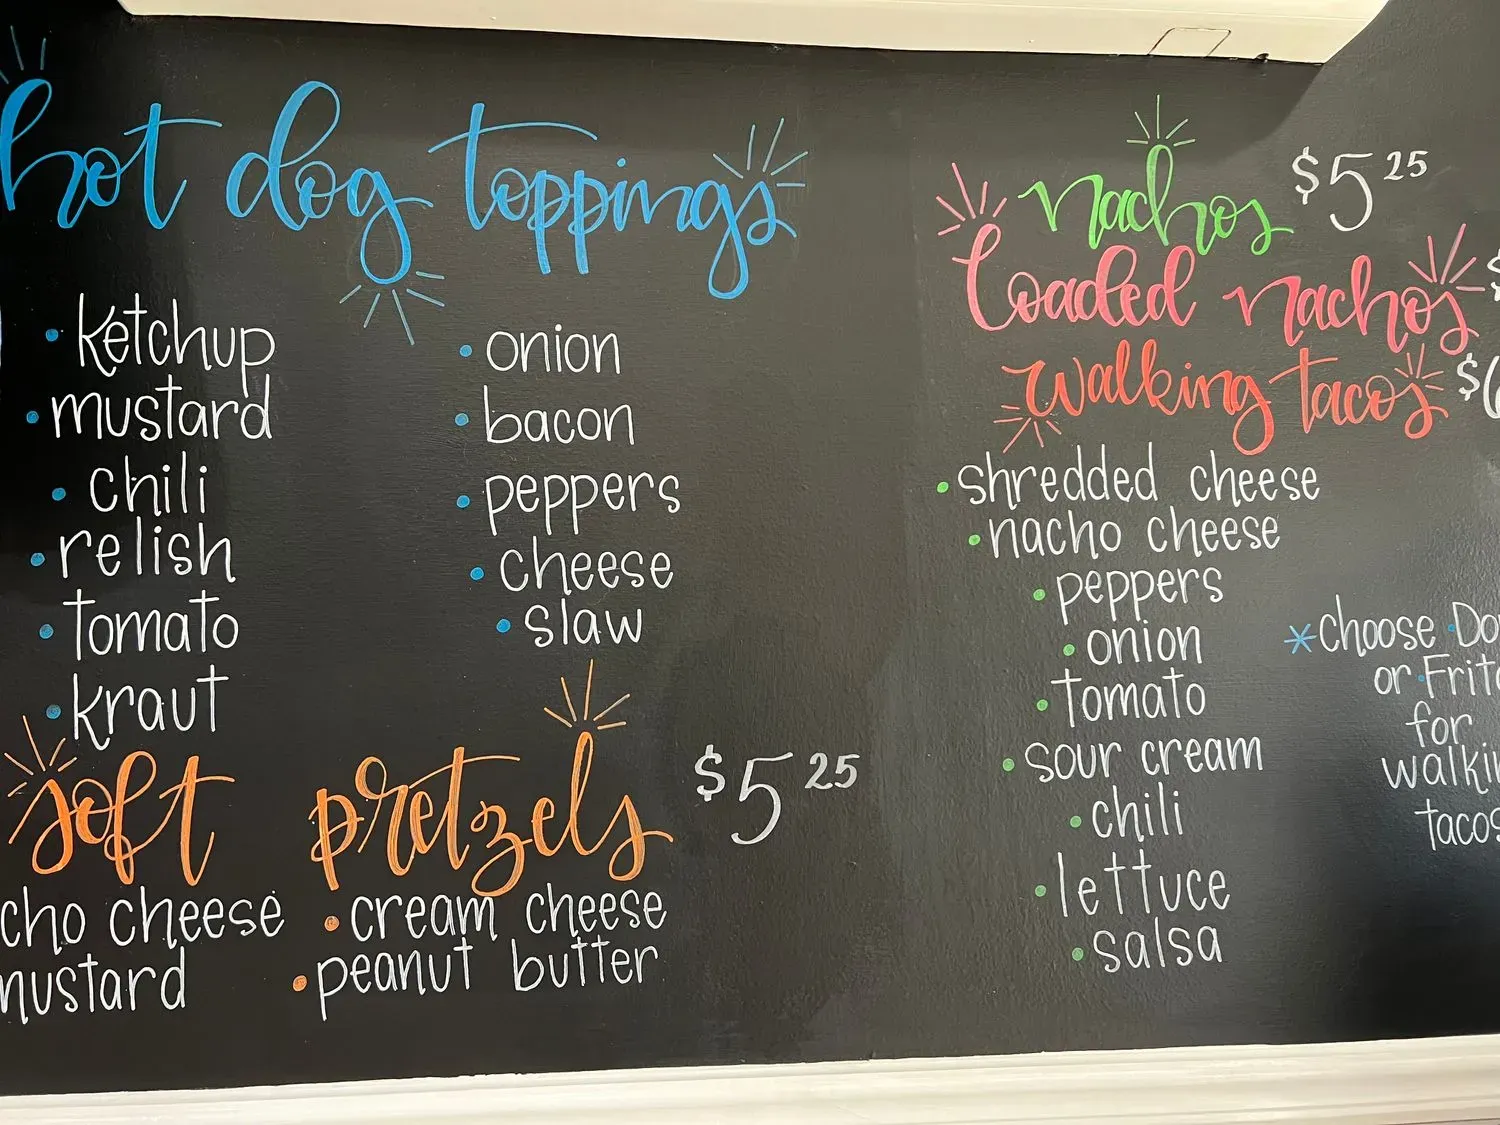 hot dog toppings
• ketchup
• mustard
• chili
• relish
• tomato
• kraut
• onion
• bacon
• peppers
• cheese
• slaw
soft pretzels $5 25
cho cheese
mustard
• cream cheese
• peanut butter
nachos $5 25
loaded nachos $
walking tacos $6
• shredded cheese
• nacho cheese
• peppers
• onion
• tomato
• sour cream
• chili
• lettuce
• salsa
*choose • Do
or • Frito
for
walkin
tacos